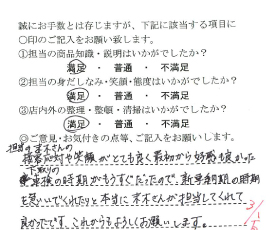 誠にお手数とは存じますが、下記に該当する項目に
〇印のご記入をお願い致します。
①担当の商品知識・説明はいかがでしたか?
満足 ・ 普通 ・ 不満足
②担当の身だしなみ・笑顔・態度はいかがでしたか?
満足 ・ 普通 ・ 不満足
③店内外の整理・整頓・清掃はいかがでしたか?
満足 ・ 普通 ・ 不満足
◎ご意見・お気付きの点等、ご記入をお願いします。
担当の末木さんの
接客応対や笑顔がとても良く最初から好感度だった
下取りの
車検の時期がもうすぐだったので、新車納期の時期
を早いでくれたりと本当に末木さんが担当してくれて
良かったです。これからもよろしくお願いします。